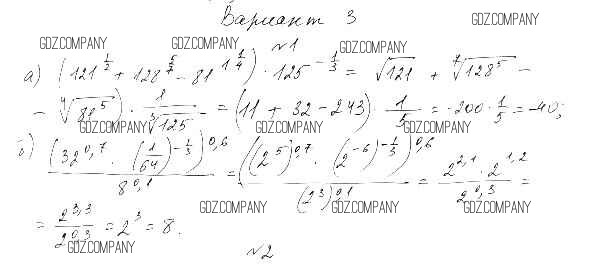 Вариант 3
GDZ.COMPANY
№1
GDZ.COMPANY GDZ.COMPANY GDZ.COMPANY
а) (121^{1/2} + 128^{5/7} - 81^{1 1/4}) · 125^{-1/3} = √121 + ⁷√128⁵ -
- ⁴√81⁵) · 1/³√125 = (11 + 32 - 243) · 1/5 = -200 · 1/5 = -40;
GDZ.COMPANY GDZ.COMPANY GDZ.COMPANY
б) (32^{0,7} · (1/64)^{-1/3})^{0,6} / 8^{0,1} = ((2^5)^{0,7} · (2^{-6})^{-1/3})^{0,6} / (2^3)^{0,1} = 2^{2,1} · 2^{1,2} / 2^{0,3} =
GDZ.COMPANY GDZ.COMPANY GDZ.COMPANY
= 2^{3,3} / 2^{0,3} = 2^3 = 8.
GDZ.COMPANY
№2